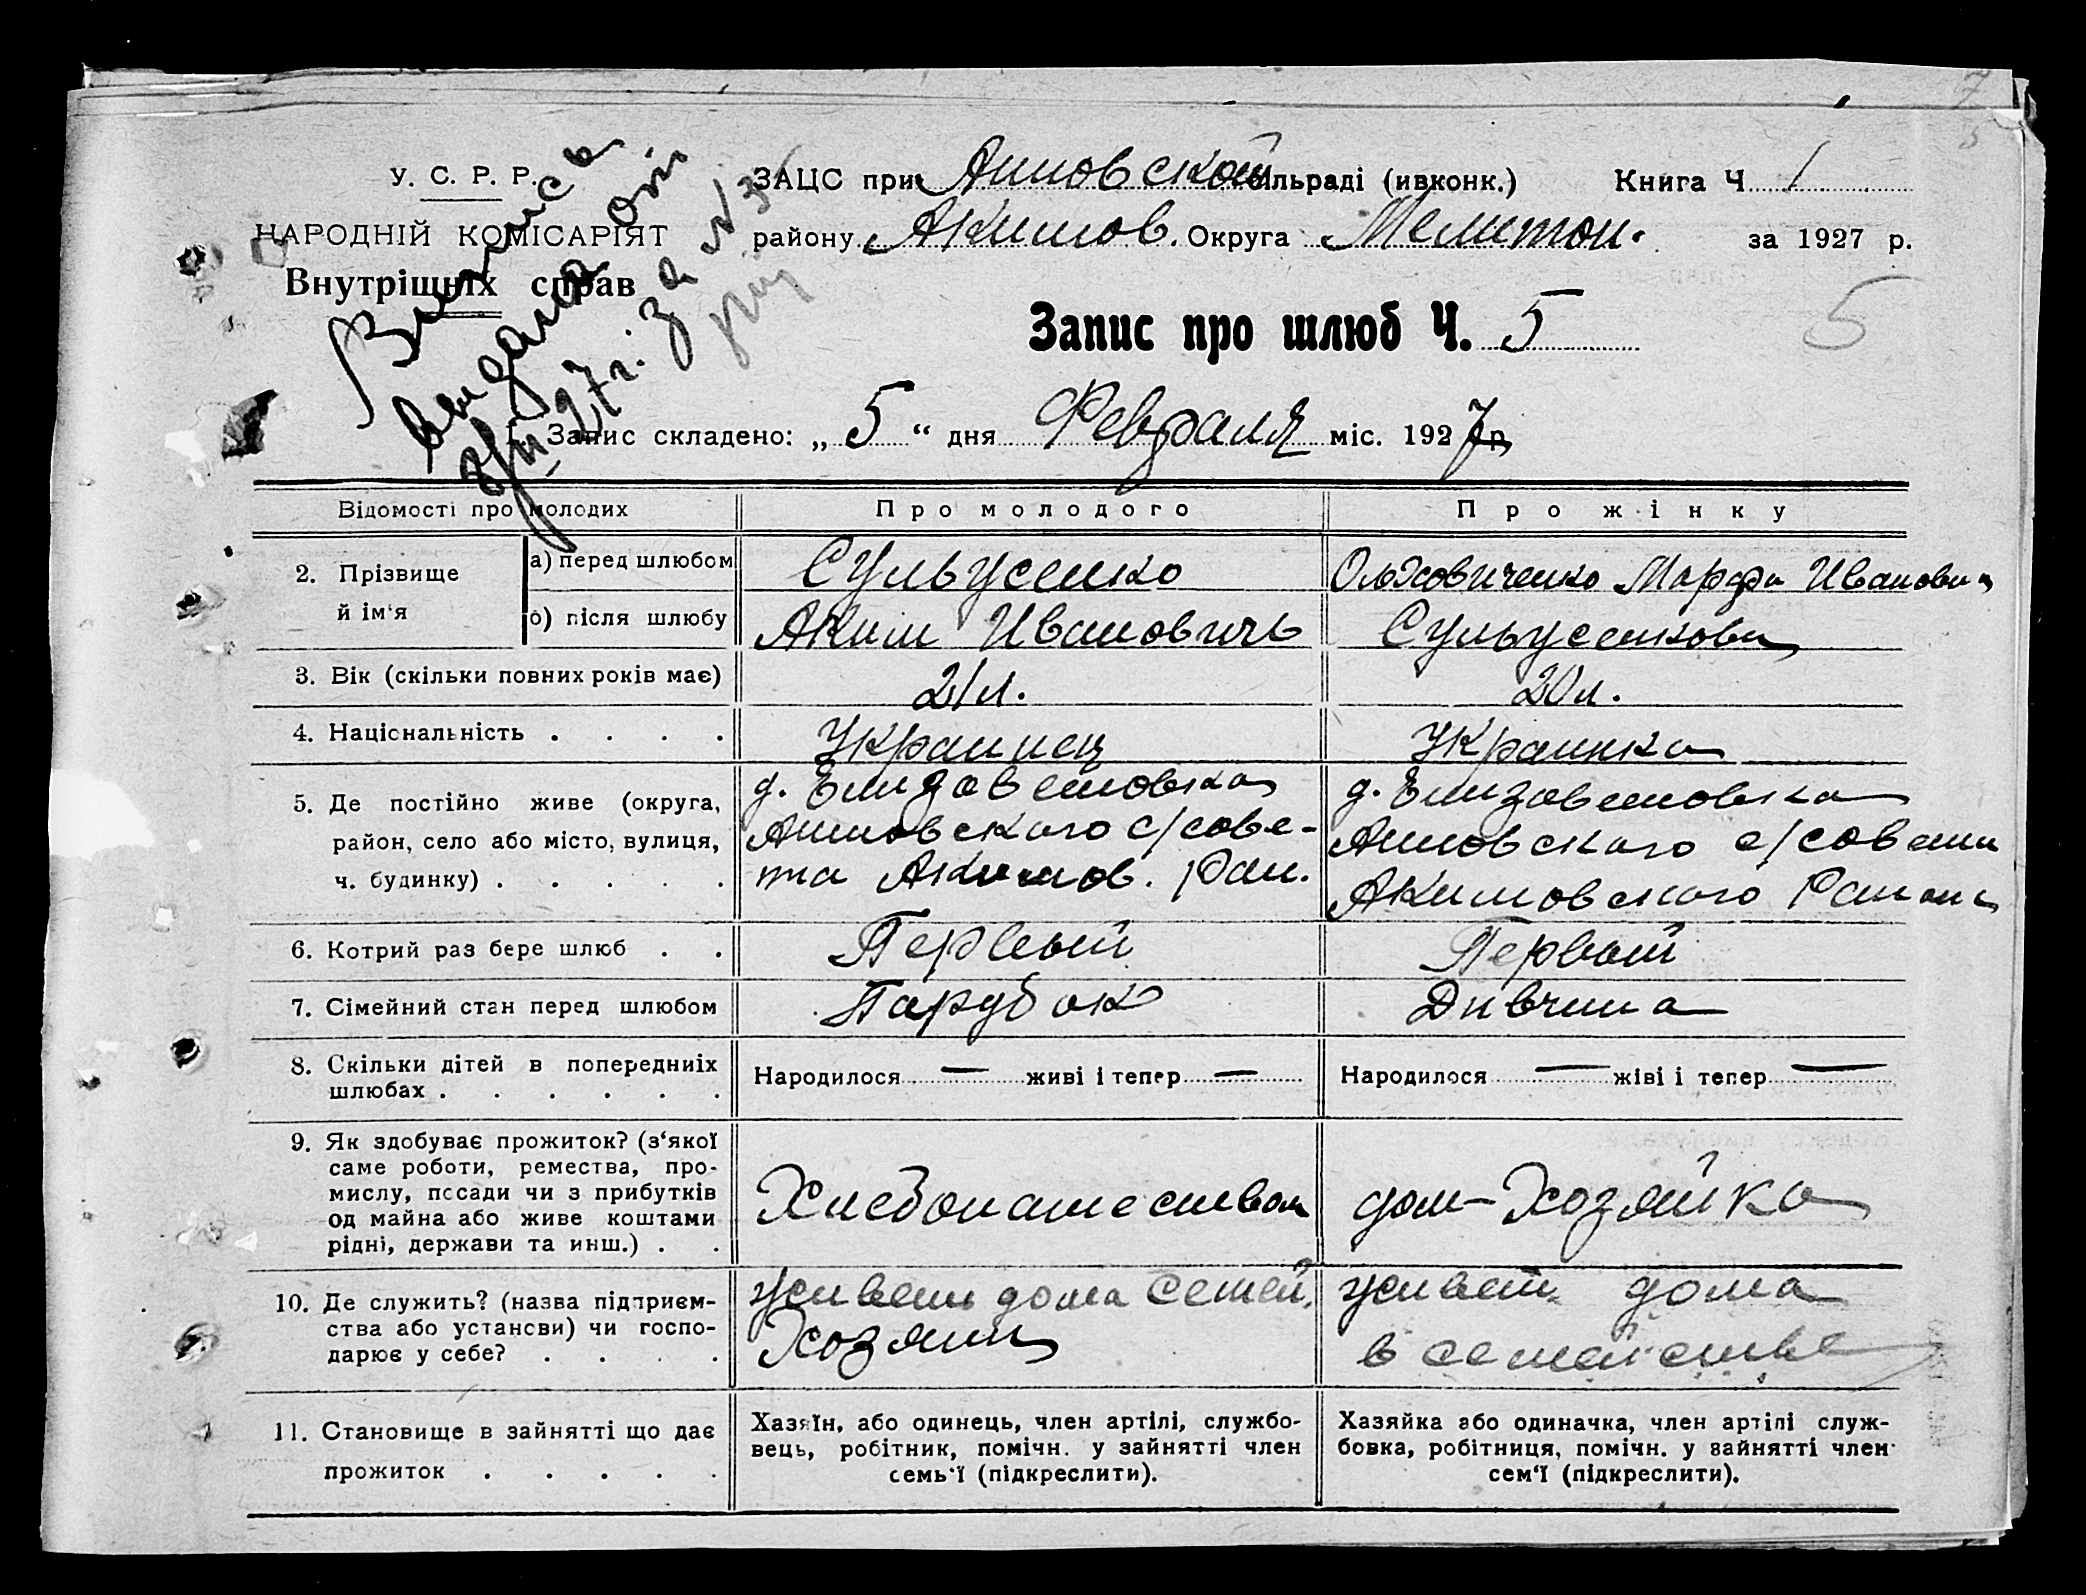 У. С. Р. Р.
НАРОДНІЙ КОМІСАРІЯТ
Внутрішніх справ
Выпись
выдана
27 г. за №
ЗАЦС при Анновской сільраді (ивконк.) Книга Ч 1
району Акимов. Округа Мелитоп. за 1927 р.
Запис про шлюб Ч. 5
5
1. Запис складено: „ 5 “ дня Февраля міс. 1927 р.
Відомості про молодих Про молодого Про жінку
2. Прізвище й ім‘я
а) перед шлюбом Сульусенко Ольховиченко Марфа Ивановна
б) після шлюбу Аким Ивановичъ Сульусенкова
3. Вік (скільки повних років має) 21 л. 20 л.
4. Національність . . . . Украинец Украинка
5. Де постійно живе (округа, район, село або місто, вулиця, ч. будинку) . . . . .
д. Елизаветовка
Анновского с/сове-
та Акимов. Рай.
д. Елизаветовка
Анновского с/совета
Акимовского Района
6. Котрий раз бере шлюб . . Первый Первый
7. Сімейний стан перед шлюбом Парубок Дивчина
8. Скільки дітей в попередниіх шлюбах . . . . . .
Народилося — живі і тепер —
Народилося — жіві і тепер —
9. Як здобуває прожиток? (з‘якої
саме роботи, ремества, про-
мислу, посади чи з прибутків
од майна або живе коштами
рідні, держави та инш.) . .
Хлебопашеством
дом-Хозяйка
10. Де служить? (назва підприєм-
ства або установи) чи госпо-
дарює у себе? . . . .
живет дома семей.
Хозяин
живет дома
в семействе
11. Становище в зайнятті що дає
прожиток . . . . .
Хазяїн, або одинець, член артілі, службо-
вець, робітник, помічн. у зайнятті член
семь‘ї (підкреслити).
Хазяйка або одиначка, член артілі служ-
бовка, робітниця, помічн. у зайнятті член
сем‘ї (підкреслити).